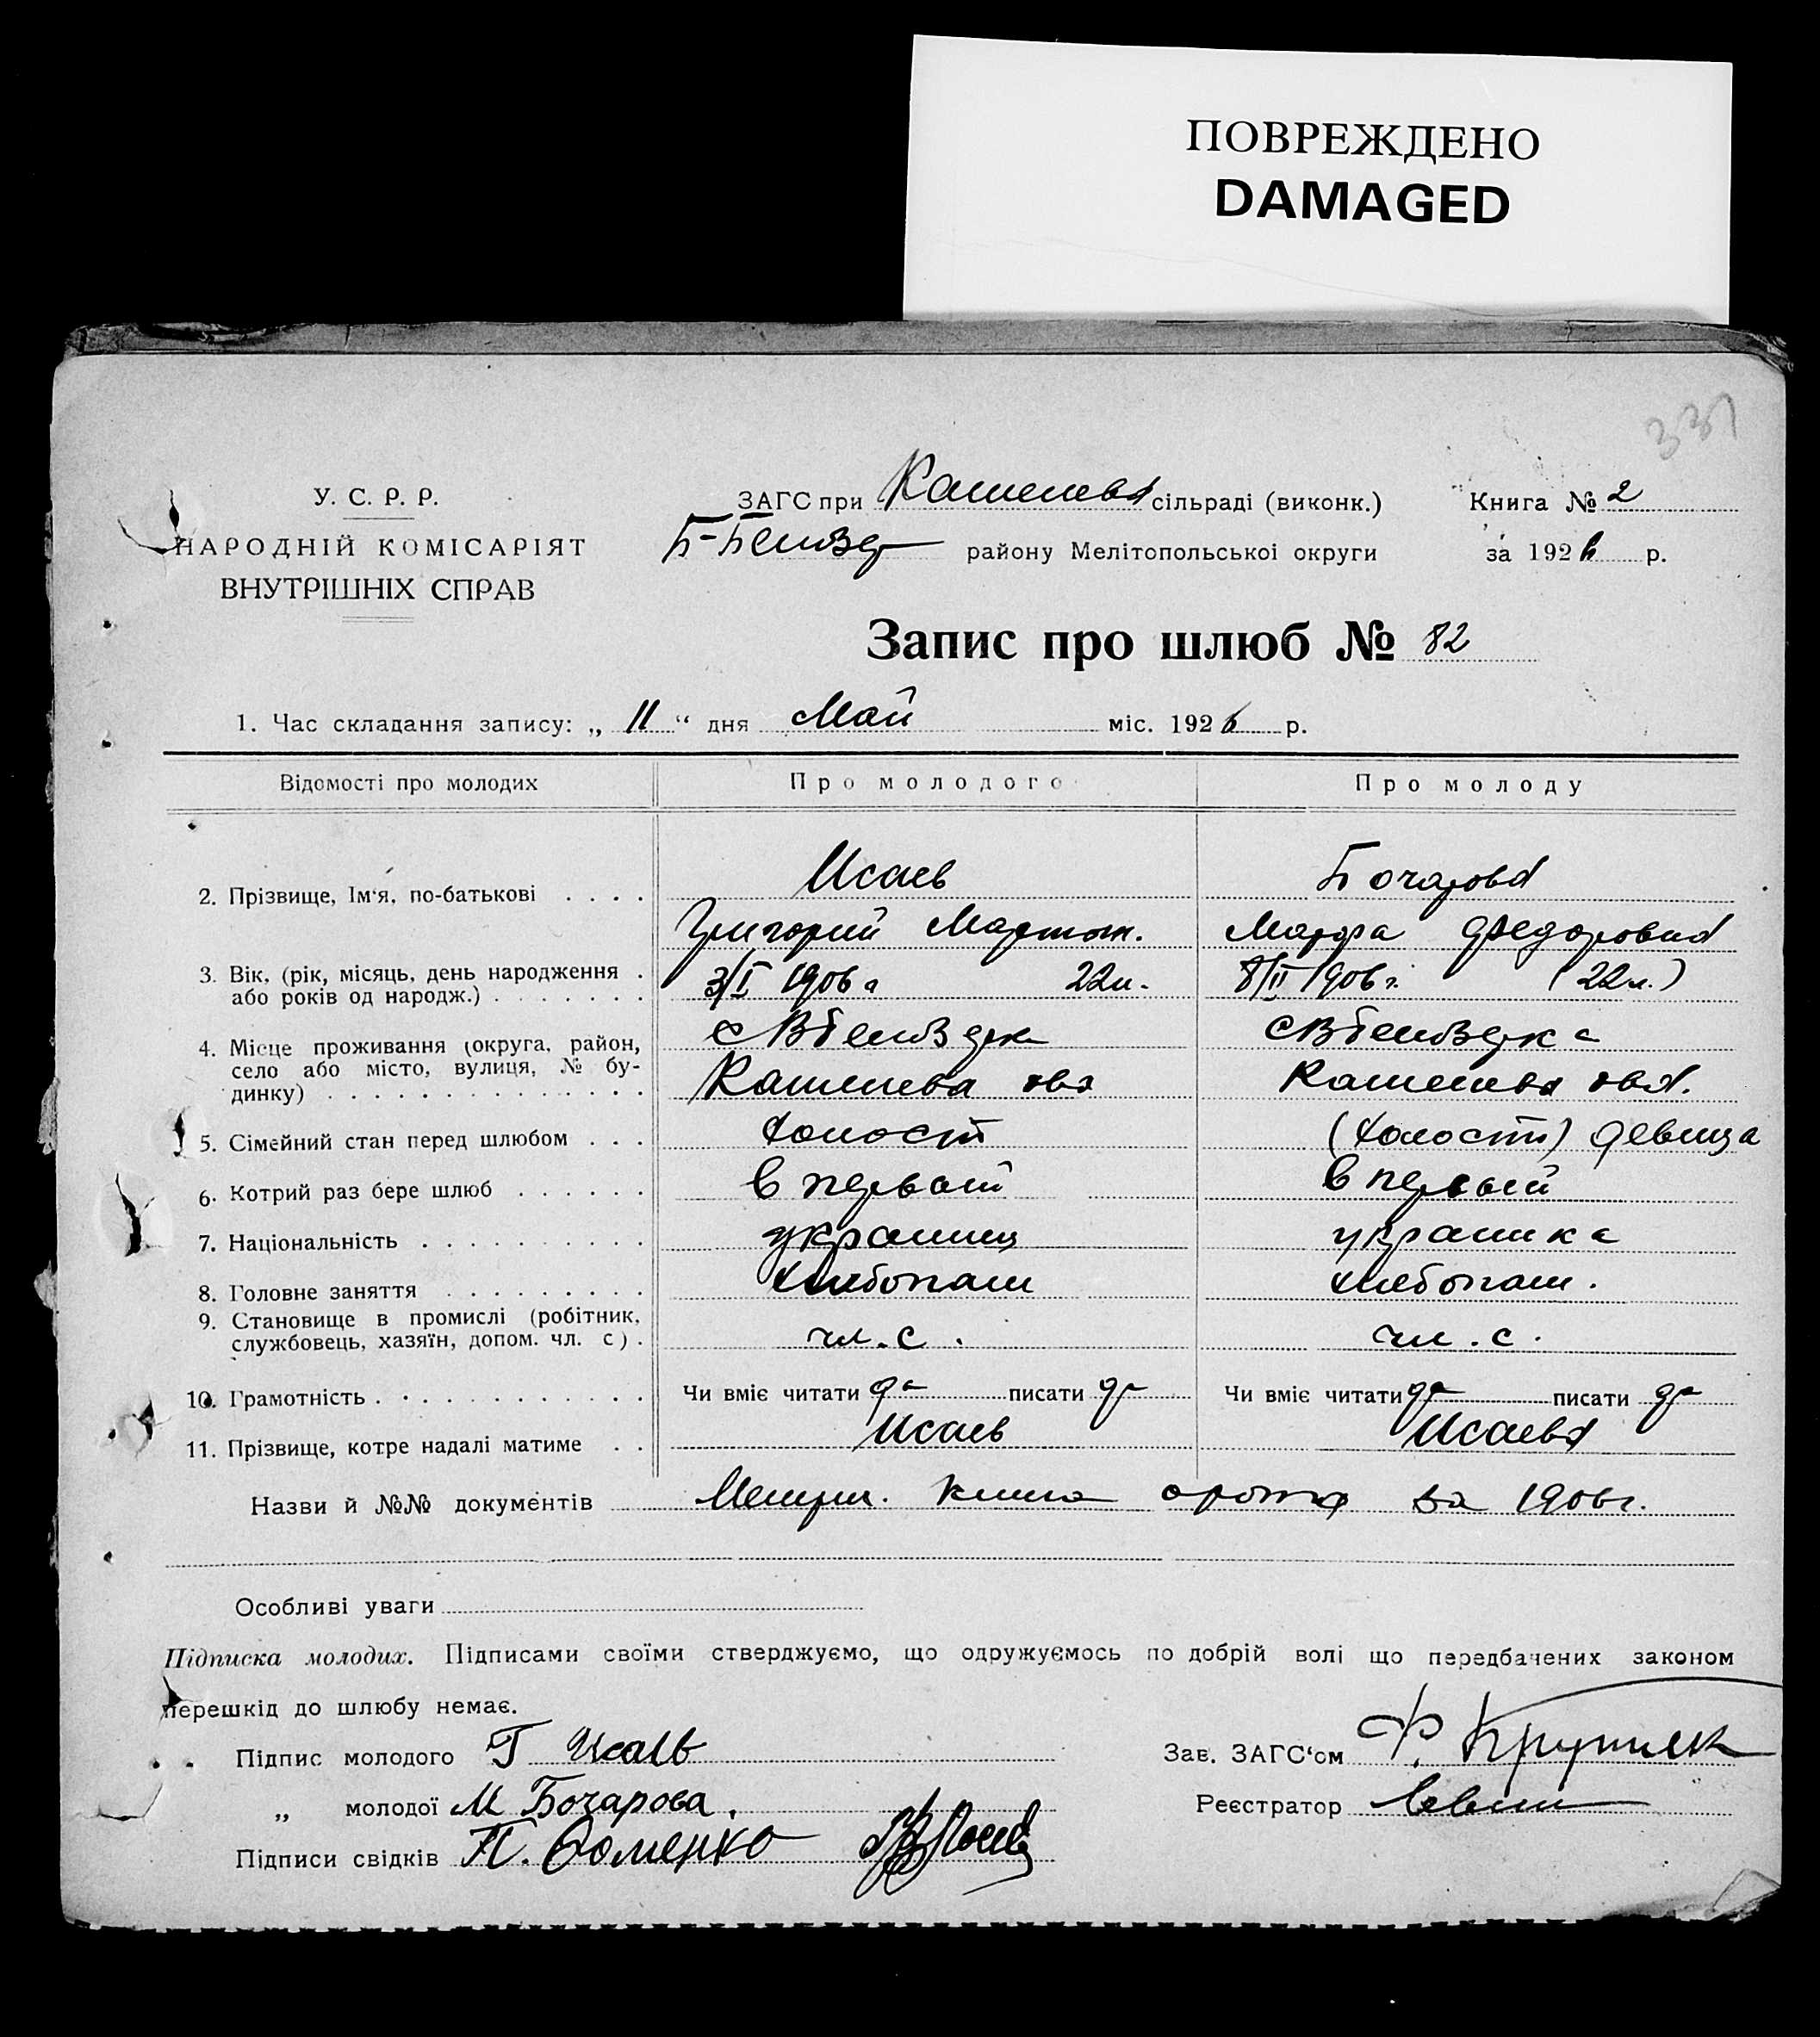 ПОВРЕЖДЕНО
DAMAGED
337
У. С. Р. Р.
НАРОДНІЙ КОМІСАРІЯТ
ВНУТРІШНІХ СПРАВ
ЗАГС при сільраді (виконк.)
Книга № 2
району Мелітопольської округи
за 1926 р.
Запис про шлюб № 82
1. Час складання запису: „ 11 “ дня Май міс. 1926 р.
Відомості про молодих
Про молодого
Про молоду
2. Прізвище, Ім‘я, по-батькові . . . .
Исаев
Бочарова
Григорий Мартын.
Марфа Федоровна
3. Вік, (рік, місяць, день народження .
або років од народж.) . . . . . . .
3/I 1906 г 22л.
8/II 1906 г. (22л.)
4. Місце проживання (округа, район,
село або місто, вулиця, № бу-
динку) . . . . . . . . . . . . . .
5. Сімейний стан перед шлюбом . . .
холост
(холост) девица
6. Котрий раз бере шлюб . . . . . .
в первый
в первый
7. Національність . . . . . . . . . .
украинец
украинка
8. Головне заняття . . . . . . . . .
хлебопаш
хлебопаш.
9. Становище в промислі (робітник,
службовець, хазяїн, допом. чл. с) .
чл. с.
чл. с.
10. Грамотність . . . . . . . . . . . .
Чи вміє читати да писати да
Чи вміє читати да писати да
11. Прізвище, котре надалі матиме . .
Исаев
Исаева
Назви й №№ документів Метрич. книга за 1906г.
Особливі уваги
Підписка молодих. Підписами своїми стверджуємо, що одружуємось по добрій волі що передбачених законом
перешкід до шлюбу немає.
Підпис молодого Г Исаев
Зав. ЗАГС‘ом Ф.
„ молодої М Бочарова.
Реєстратор
Підписи свідків П. Фоменко